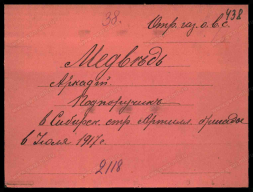 38.
438
Отр. газ. о. в. с.
Медведь
Аркадій
Подпоручик
в Сибирск. стр. Артилл. бригады
6 Іюля 1917 г.
2118